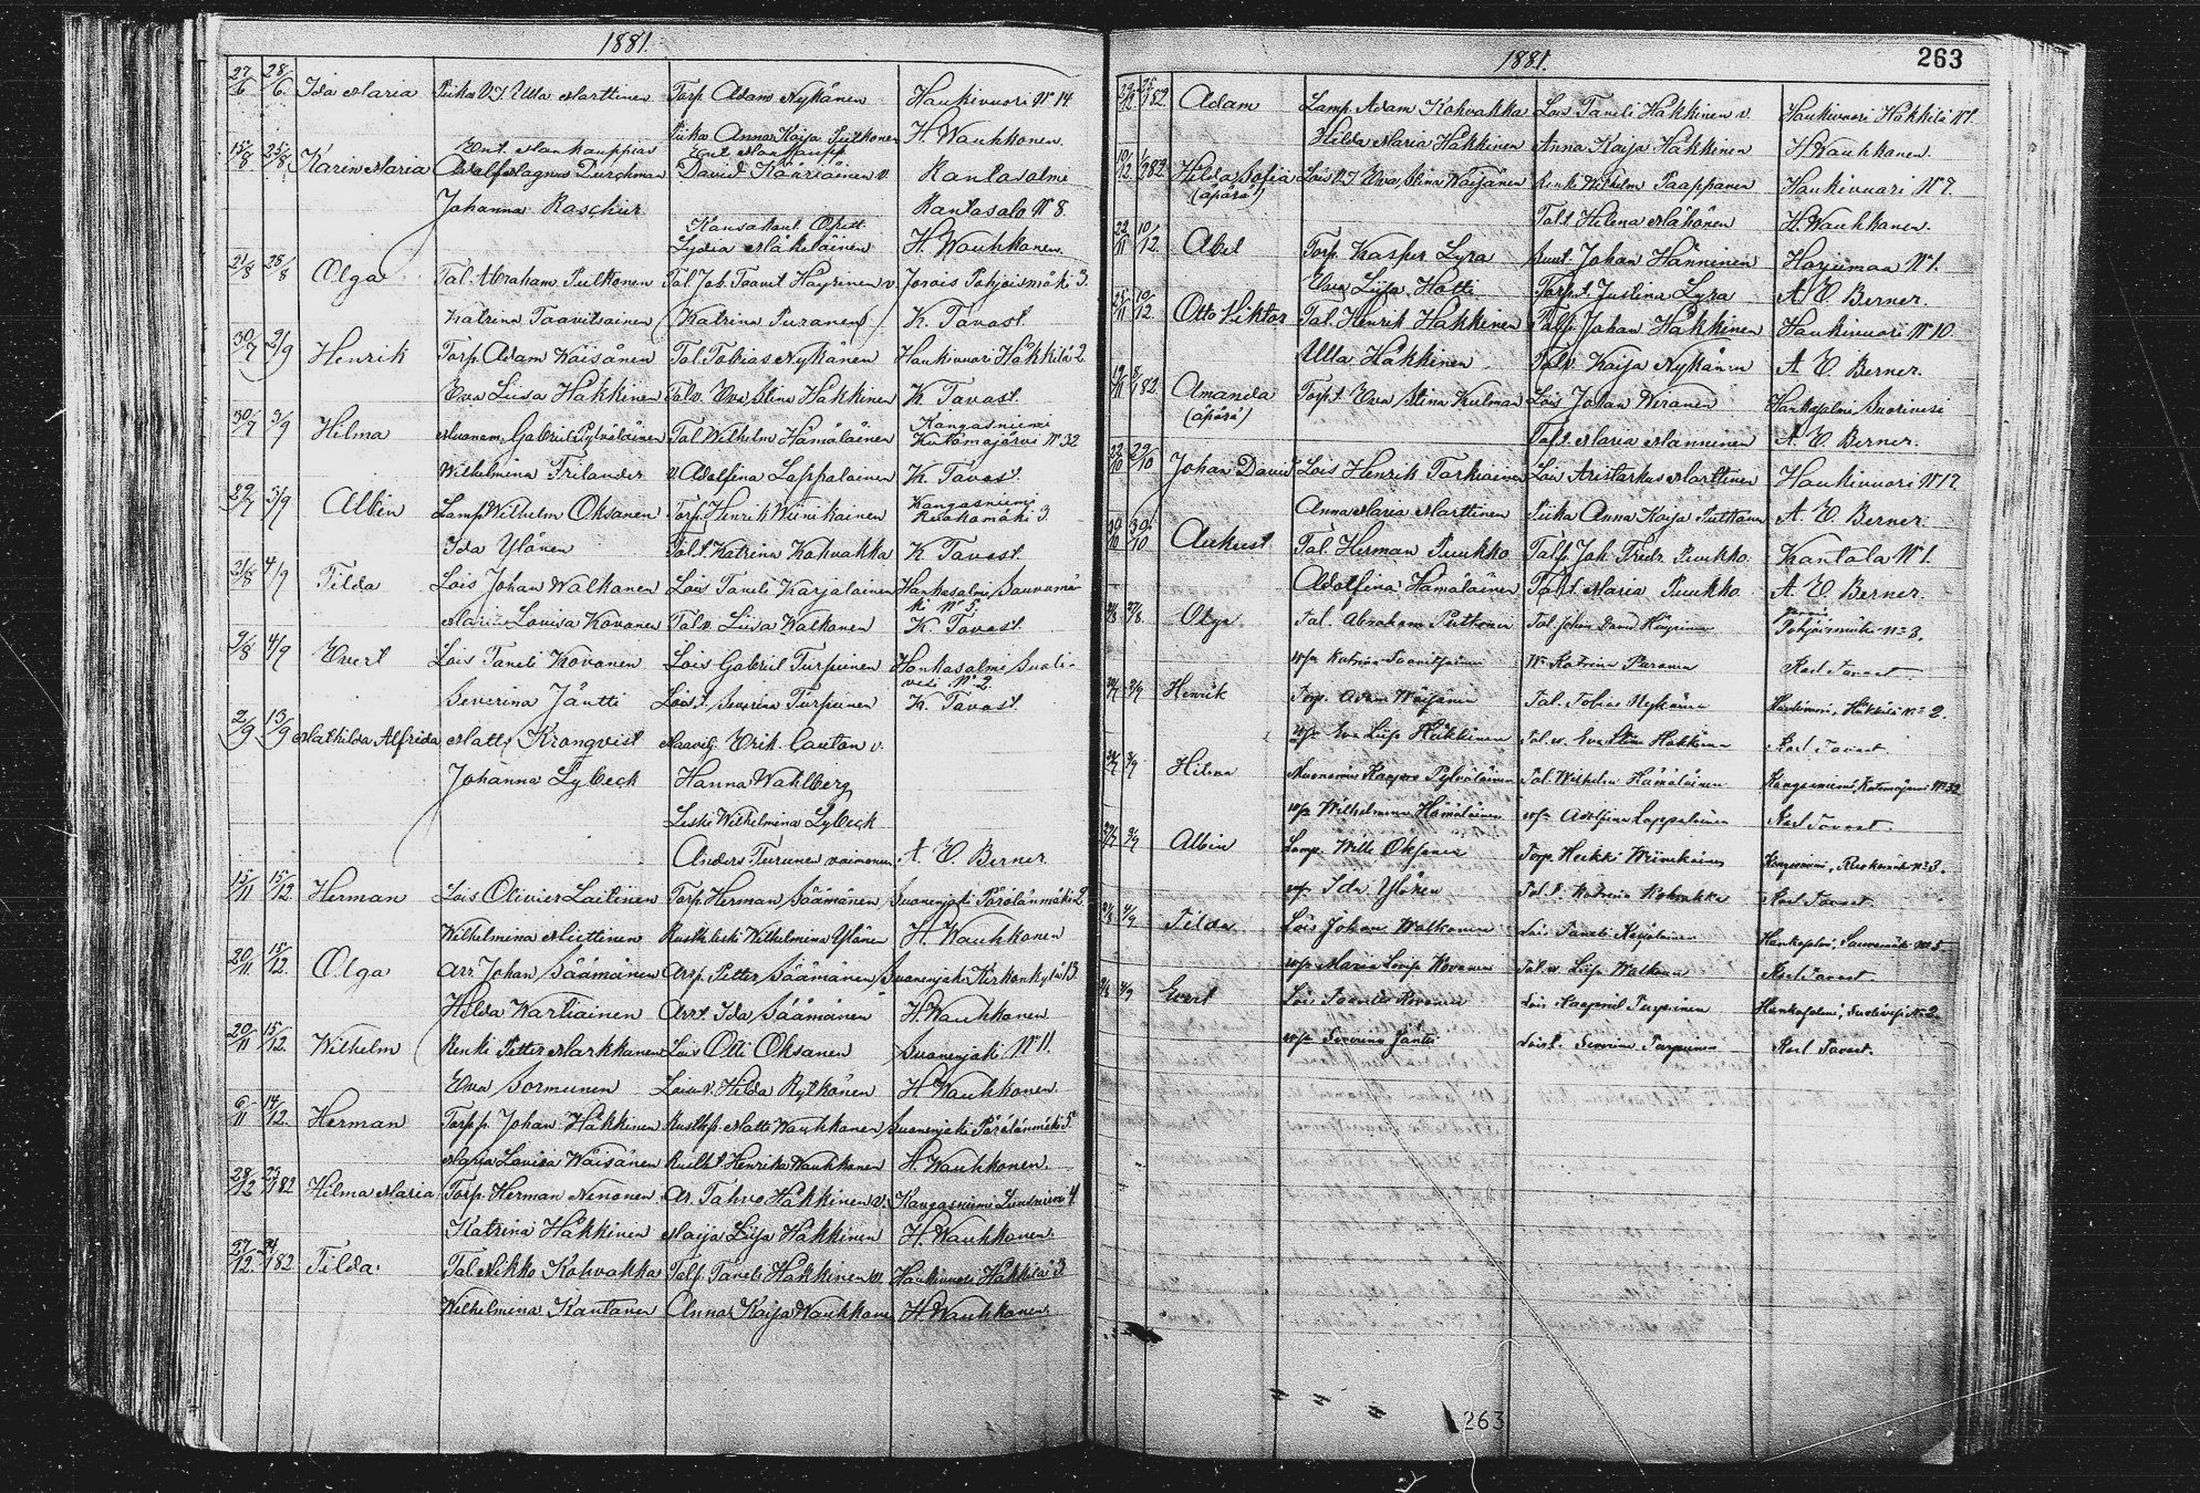 1881.
27/6 28/6 Ida Maria Piika O.S. Ulla Marttinen Torp. Adam Nykänen Haukivuori N:o 14
Piika Anna Kaija Pulkkonen H. Wauhkonen.
Ent. Maakauppias Ent. Maakaupp.
15/8 25/8 Karin Maria Adolf Magnus Durchman David Kääriäinen v. Rantasalmi
Johanna Raschier Rantasalo N:o 8.
Kansakoul. Opett.
Lydia Mäkeläinen H. Wauhkonen.
21/8 28/8 Olga Tal. Abraham Pulkonen Tal. Joh. Taavit Häyrinen v. Jorois Pohjoismäki 3.
Katrina Taavitsainen (Katrina Puranen) K. Tavast.
30/7 2/9 Henrik Torp. Adam Wäisänen Tal. Tobias Nykänen Haukivuori Häkkilä 2.
Eva Liisa Häkkinen Talv. Eva Stina Häkkinen K. Tavast.
30/7 3/9 Hilma Muonam. Gabriel Pylväläinen Tal. Wilhelm Hämäläinen Kangasniemi Kutemajärvi N:o 32
Wilhelmina Frilander v. Adolfina Lappalainen K. Tavast.
29/7 3/9 Albin Lamp. Wilhelm Oksanen Torp. Henrik Wiinikainen Kangasniemi Reukamäki 3.
Ida Ylönen Tal. t. Katrina Kohvakka K. Tavast.
21/8 4/9 Tilda Lois Johan Walkonen Lois Taneli Karjalainen Hankasalmi Sauvamä-
ki N:o 5.
Maria Lovisa Kovanen Talv. Liisa Walkonen K. Tavast.
9/8 4/9 Evert Lois Taneli Kovanen Lois Gabriel Turpeinen Hankasalmi Suoli-
vesi N:o 2.
Severina Jäntti Lois t. Severina Turpeinen K. Tavast.
2/9 13/9 Mathilda Alfrida Matts Kronqvist Maavilj. Erik Cantan v.
Johanna Lybeck Hanna Wahlberg
Leski Wilhelmina Lybeck
Anders Turunen vaimonen A. E. Berner
15/11 15/12. Herman Lois Olivier Laitinen Torp. Herman Säämänen Suonenjoki Pörölänmäki 2
Wilhelmina Miettinen Rusth. leski Wilhelmina Ylönen H. Wauhkonen
20/11. 15/12. Olga Arr. Johan Säämänen Arrp. Petter Säämänen Suonenjoki Kirkonkylä 13
Hilda Wartiainen Arrt. Ida Säämänen H. Wauhkonen
20/11 15/12. Wilhelm Renki Petter Markkanen Lois Otti Oksanen Suonenjoki N:o 11.
Eva Sormunen Lois v. Hilda Rytkönen H. Wauhkonen
6/11 14/12. Herman Torpp. Johan Häkkinen Rusthp. Matti Wauhkonen Suonenjoki Pörölänmäki 5
Maria Lovisa Wäisänen Rustht. Henrika Wauhkonen H. Wauhkonen.
28/12 Hilma Maria Torp. Herman Nenonen Ar. Tahvo Häkkinen v. Kangasniemi 4
Katrina Häkkinen Maija Liisa Häkkinen H. Wauhkonen.
27/12. Tilda. Tal. Mikko Kohvakka Talp. Taneli Häkkinen v. Haukivuori Häkkilä 3
Wilhelmina Kautanen Anna Kaija Wauhkonen H. Wauhkonen.
1881. 263
Adam Lamp. Adam Kohvakka Lois Taneli Häkkinen v. Haukivuori Häkkilä N:o 1.
Hilda Maria Häkkinen Anna Kaija Häkkinen H. Wauhkonen.
Hilda Sofia Lois O.S. Eva Stina Wäisänen Renki Wilhelm Paappanen Haukivuori N:o 7.
(äpärä) Tal. t. Helena Mähönen H. Wauhkonen.
22/11 10/12. Abel Torp. Kasper Lyra Suut. Johan Hänninen Harjumaa N:o 1.
Eva Liisa Hotti Torp. t. Justina Lyra A. E. Berner.
25/11 10/12. Otto Viktor Tal. Henrik Häkkinen Talp. Johan Häkkinen Haukivuori N:o 10.
Ulla Häkkinen Talv. Kaija Nykänen A. E. Berner.
Amanda Torp. t. Eva Stina Kulman Lois Johan Weranen Hankasalmi Suorivesi
(äpärä) Tal. t. Maria Manninen A. E. Berner.
22/10 29/10 Johan David Lois Henrik Tarkiainen Lois Aristarkus Marttinen Haukivuori N:o 12.
Anna Maria Marttinen Piika Anna Kaija Pulkkonen A. E. Berner.
30/10 Aukust Tal. Herman Puukko Talp. Joh. Fredr. Puukko Kantala N:o 1.
Adolfina Hämäläinen Tal. t. Maria Puukko A. E. Berner.
21/8 27/8 Olga Tal. Abraham Pulkonen Tal. Johan David Häyrinen Jorois Pohjoismäki N:o 3.
v:o Katrina Taavitsainen W. Katrina Puranen Karl Tavast.
30/7 2/9 Henrik Torp. Adam Wäisänen Tal. Tobias Nykänen Haukivuori, Häkkilä N:o 2.
v:o Eva Liisa Häkkinen Tal. v. Eva Stina Häkkinen Karl Tavast.
30/7 3/9 Hilma Muonamies Kasper Pylväläinen Tal. Wilhelm Hämäläinen Kangasniemi, Kutemajärvi N:o 32
v:o Wilhelmina Hämäläinen v:o Adolfina Lappalainen Karl Tavast.
Albin Lamp. Wille Oksanen Torp. Heikki Wiinikainen Kangasniemi, Reukamäki N:o 3.
v:o Ida Ylönen Tal. t. Katrina Kohvakka Karl Tavast.
21/8 4/9 Tilda Lois Johan Walkonen Lois Taneli Karjalainen Hankasalmi, Sauvamäki N:o 5
v:o Maria Lovisa Kovanen Tal. v. Liisa Walkonen Karl Tavast.
9/8 4/9 Evert Lois Taneli Kovanen Lois Kaapriel Turpeinen Hankasalmi, Suolivesi N:o 2
v:o Severina Jäntti Lois t. Severina Turpeinen Karl Tavast.
263